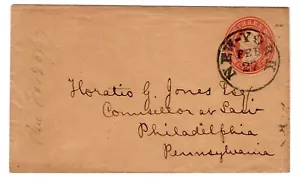 THREE
NEW-YORK
FEB
27
Horatio G. Jones Esq
Counsellor at Law
Philadelphia
Pennsylvania